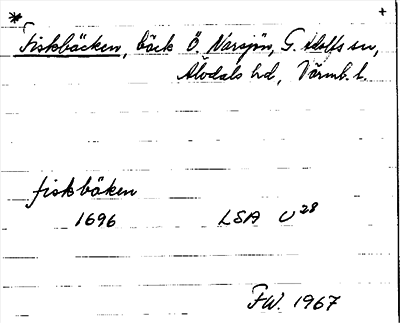 * +
Fiskbäcken, bäck Ö. Narsjön, G. Adolfs sn,
Älvdals hd, Värml. l.
fiskbäken
1696 LSA U28
FW. 1967